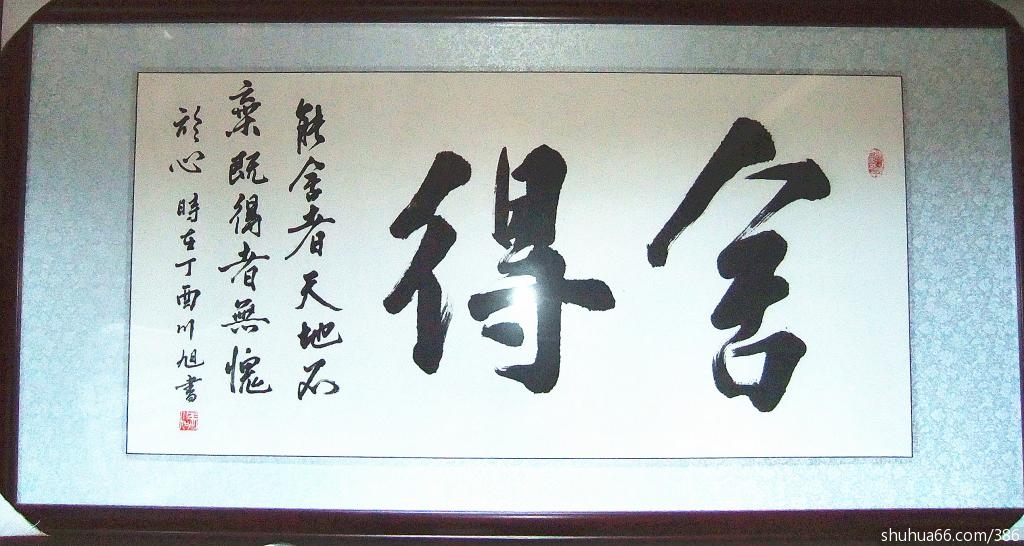 舍得
能舍者天地不
棄既得者無愧
於心 時在丁酉川旭書
shuhua66.com/386